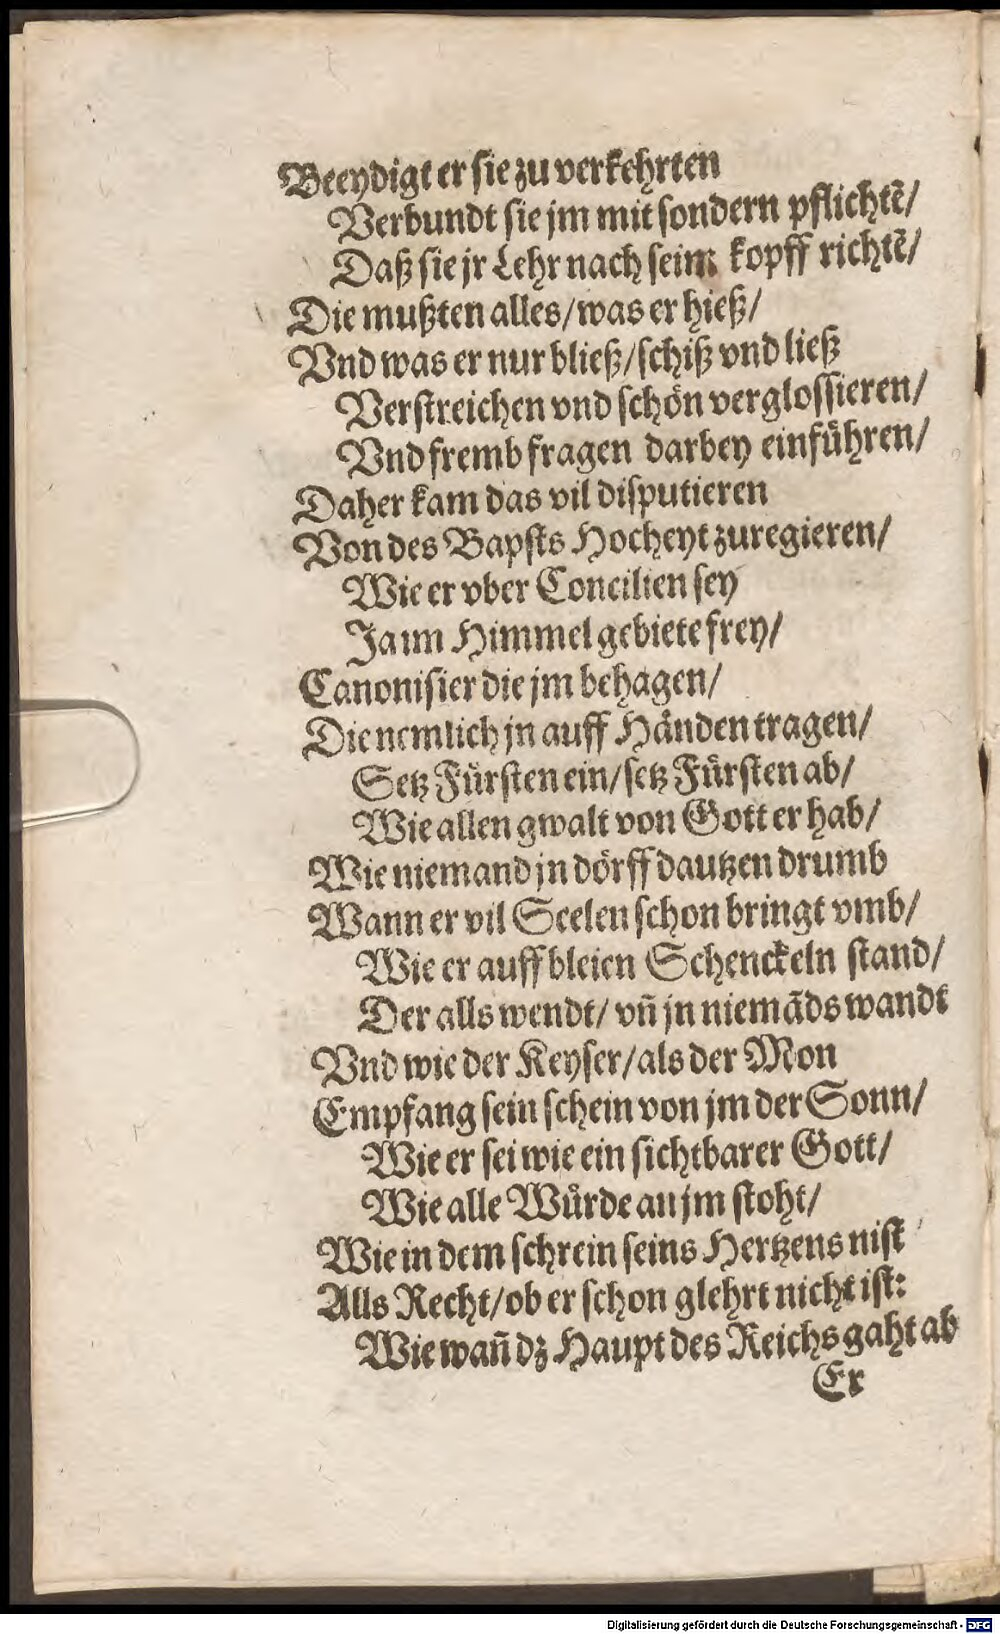 Beeydigt er sie zu verkehrten
Verbundt sie jm mit sondern pflichtẽ/
Daß sie jr Lehr nach seim kopff richtẽ/
Die mußten alles/was er hieß/
Vnd was er nur bließ/schiß vnd ließ
Verstreichen vnd schön verglossieren/
Vnd fremb fragen darbey einführen/
Daher kam das vil disputieren
Von des Bapsts Hocheyt zuregieren/
Wie er vber Concilien sey
Ja im Himmel gebiete frey/
Canonisier die jm behagen/
Die nemlich jn auff Händen tragen/
Setz Fürsten ein/setz Fürsten ab/
Wie allen gwalt von Gott er hab/
Wie niemand jn dörff dautzen drumb
Wann er vil Seelen schon bringt vmb/
Wie er auff bleien Schenckeln stand/
Der alls wendt/ vñ jn niemãds wandt
Vnd wie der Keyser/als der Mon
Empfang sein schein von jm der Sonn/
Wie er sei wie ein sichtbarer Gott/
Wie alle Würde an jm stoht/
Wie in dem schrein seins Hertzens nist
Alls Recht/ob er schon glehrt nicht ist:
Wie wañ dz Haupt des Reichs gaht ab
Er
Digitalisierung gefördert durch die Deutsche Forschungsgemeinschaft - DFG